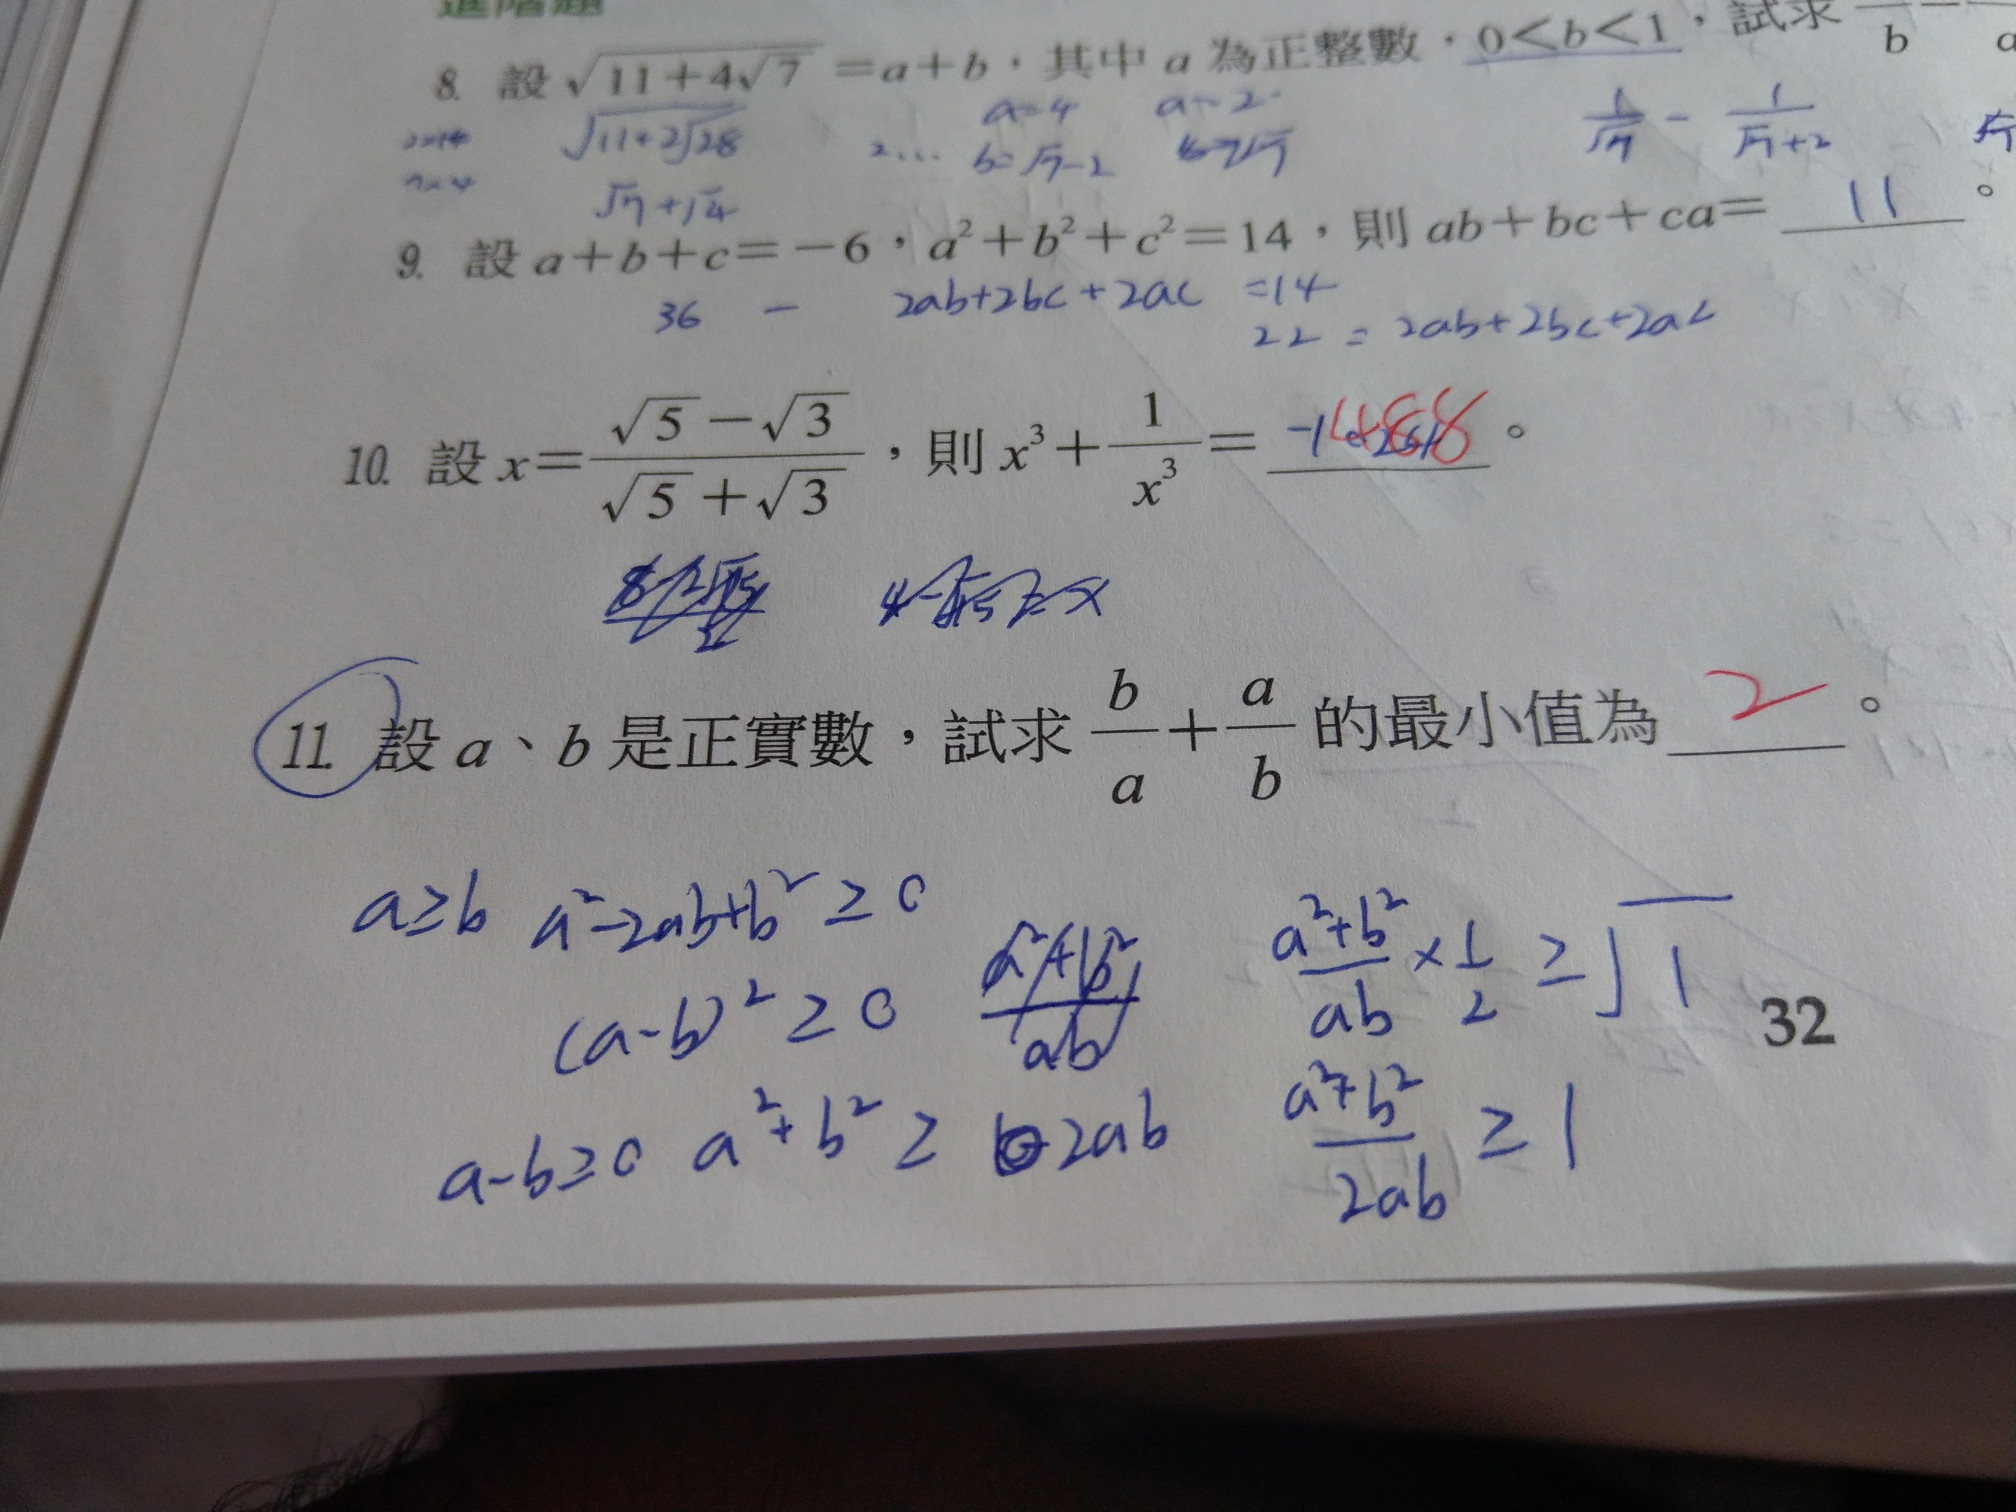 進階題
8. 設 √(11+4√7) = a+b,其中 a 為正整數,0<b<1,試求
b
√(11+2√28)
a=4
a=2
b=√7-2
1/√7 - 1/(√7+2)
√7+√4
9. 設 a+b+c=-6,a²+b²+c²=14,則 ab+bc+ca= 11 。
36 - 2ab+2bc+2ac =14
22 = 2ab+2bc+2ac
10. 設 x= (√5-√3)/(√5+√3),則 x³+1/x³= 。
11. 設 a、b 是正實數,試求 b/a + a/b 的最小值為 2 。
a≥b a²-2ab+b²≥0
(a-b)²≥0
a²+b²/ab
a-b≥0 a²+b²≥ 2ab
a²+b²/ab × 1/2 ≥ √1
a²+b²/2ab ≥ 1
32